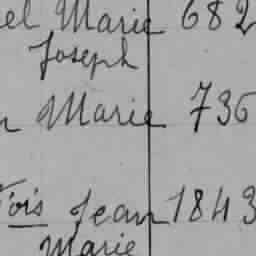 el Marie 682
Joseph
Marie 736
ois Jean 1843
Marie